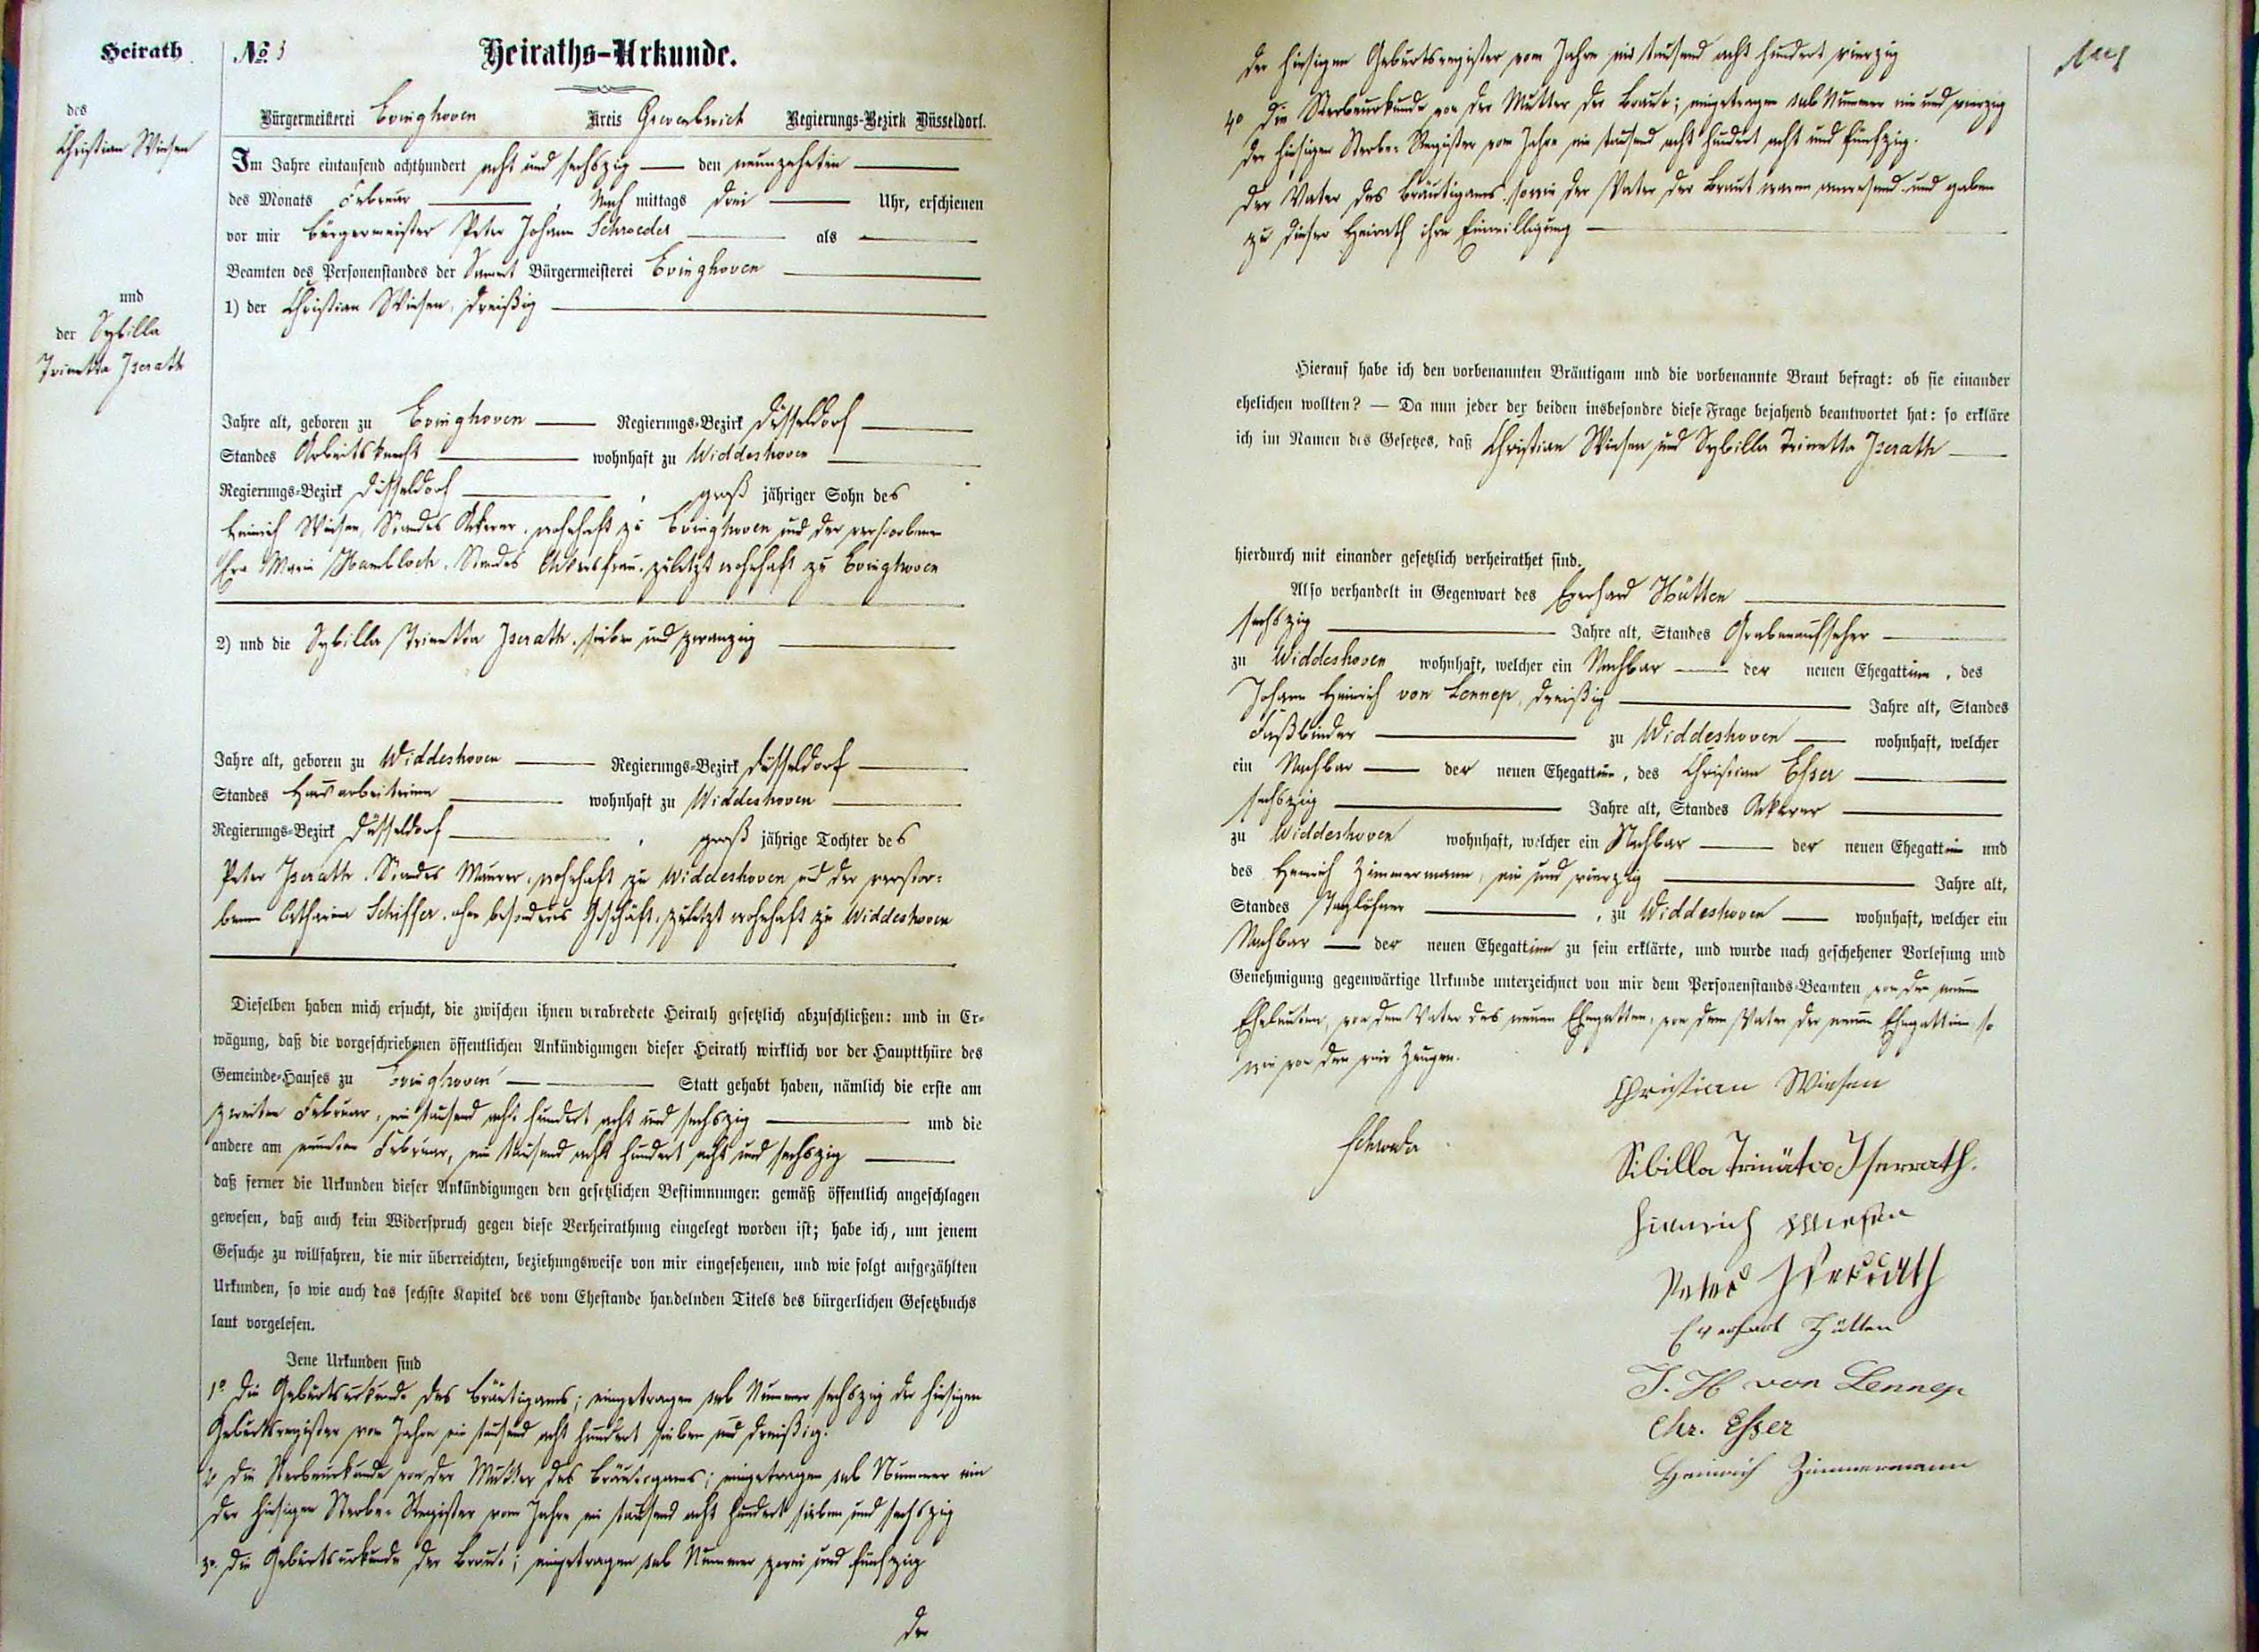 Heirath
des
Christian Wiesen
und
der Sybilla
Trinetta Iserath
No.
Heiraths-Urkunde.
Bürgermeisterei Evinghoven Kreis Grevenbroich Regierungs-Bezirk Düsseldorf.
Im Jahre eintausend achthundert acht und sechszig — den neunzehnten —
des Monats Februar —, Nach mittags drei — Uhr, erschienen
vor mir Bürgermeister Peter Johann Schroeder — als —
Beamten des Personenstandes der Sammt Bürgermeisterei Evinghoven —
1) der Christian Wiesen, dreißig —
Jahre alt, geboren zu Evinghoven — Regierungs-Bezirk Düsseldorf —
Standes Arbeitsknecht — wohnhaft zu Widdeshoven —
Regierungs-Bezirk Düsseldorf —, groß jähriger Sohn des
Heinrich Wiesen, Standes Ackerer, wohnhaft zu Evinghoven und der verstorbenen
Eva Maria Hambloch, Standes Ackersfrau, zuletzt wohnhaft zu Evinghoven
2) und die Sybilla Trinetta Iserath, sieben und zwanzig —
Jahre alt, geboren zu Widdeshoven — Regierungs-Bezirk Düsseldorf —
Standes Hausarbeiterinn — wohnhaft zu Widdeshoven —
Regierungs-Bezirk Düsseldorf —, groß jährige Tochter des
Peter Iserath, Standes Maurer, wohnhaft zu Widdeshoven und der verstor-
benen Catharina Schiffer, ohne besonderes Geschäft, zuletzt wohnhaft zu Widdeshoven
Dieselben haben mich ersucht, die zwischen ihnen verabredete Heirath gesetzlich abzuschließen: und in Er-
wägung, daß die vorgeschriebenen öffentlichen Ankündigungen dieser Heirath wirklich vor der Hauptthüre des
Gemeinde-Hauses zu Evinghoven — Statt gehabt haben, nämlich die erste am
zweiten Februar, ein tausend acht hundert acht und sechszig — und die
andere am neunten Februar, ein tausend acht hundert acht und sechszig —
daß ferner die Urkunden dieser Ankündigungen den gesetzlichen Bestimmungen gemäß öffentlich angeschlagen
gewesen, daß auch kein Widerspruch gegen diese Verheirathung eingelegt worden ist; habe ich, um jenem
Gesuche zu willfahren, die mir überreichten, beziehungsweise von mir eingesehenen, und wie folgt aufgezählten
Urkunden, so wie auch das sechste Kapitel des vom Ehestande handelnden Titels des bürgerlichen Gesetzbuchs
laut vorgelesen.
Jene Urkunden sind
1° die Geburtsurkunde des Bräutigams; eingetragen sub Nummer sechszig der hiesigen
Geburtsregister vom Jahre ein tausend acht hundert sieben und dreißig.
2° die Sterbeurkunde von der Mutter des Bräutigams; eingetragen sub Nummer ein
der hiesigen Sterbe-Register vom Jahre ein tausend acht hundert sieben und sechszig
3°. die Geburtsurkunde der Braut; eingetragen sub Nummer zwei und fünfzig
der
der hiesigen Geburtsregister vom Jahre ein tausend acht hundert vierzig
4° die Sterbeurkunde von der Mutter der Braut; eingetragen sub Nummer ein und vierzig
der hiesigen Sterbe-Register vom Jahre ein tausend acht hundert acht und fünfzig.
Der Vater des Bräutigams, sowie der Vater der Braut waren anwesend und gaben
zu dieser Heirath ihre Einwilligung —
Hierauf habe ich den vorbenannten Bräutigam und die vorbenannte Braut befragt: ob sie einander
ehelichen wollten? — Da nun jeder der beiden insbesondre diese Frage bejahend beantwortet hat: so erkläre
ich im Namen des Gesetzes, daß Christian Wiesen und Sybilla Trinetta Iserath —
hierdurch mit einander gesetzlich verheirathet sind.
Also verhandelt in Gegenwart des Everhard Hütten —
sechszig — Jahre alt, Standes Grabenaufseher —
zu Widdeshoven wohnhaft, welcher ein Nachbar — der neuen Ehegattinn, des
Johann Heinrich von Lennep, dreißig — Jahre alt, Standes
Faßbinder — zu Widdeshoven — wohnhaft, welcher
ein Nachbar — der neuen Ehegattinn, des Christian Esser —
sechszig — Jahre alt, Standes Ackerer —
zu Widdeshoven wohnhaft, welcher ein Nachbar — der neuen Ehegattinn und
des Heinrich Zimmermann, ein und vierzig — Jahre alt,
Standes Taglöhner —, zu Widdeshoven — wohnhaft, welcher ein
Nachbar — der neuen Ehegattinn zu sein erklärte, und wurde nach geschehener Vorlesung und
Genehmigung gegenwärtige Urkunde unterzeichnet von mir dem Personenstands-Beamten von den neuen
Eheleuten, von dem Vater des neuen Ehegatten, von dem Vater der neuen Ehegattinn, so
wie von den vier Zeugen.
Christian Wiesen
Schroeder
Sibilla Trinätta Iserrath.
Heinrich Wiesen
Peter Iserath
Everhard Hütten
J. H von Lennep
Chr. Esser
Heinrich Zimmermann